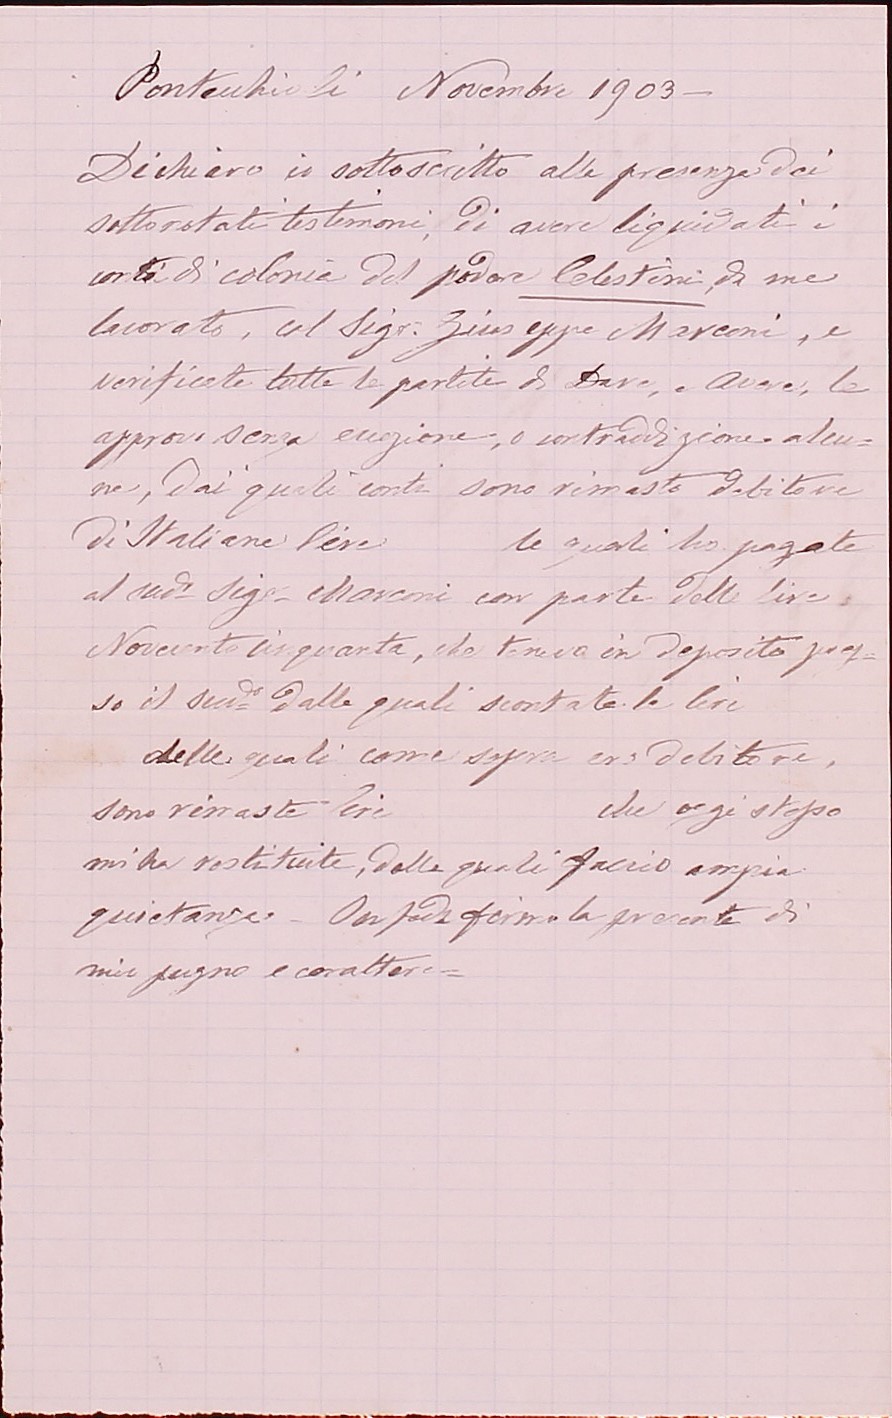 Pontecchio li Novembre 1903 —
Dichiaro io sottoscritto alla presenza dei
sottonotati testimoni, di avere liquidati i
conti di colonia del podere Celestini, da me
lavorato, col Sigr. Giuseppe Marconi, e
verificate tutte le partite di Dare, e Avere, le
approvo senza eccezione, o contraddizione alcu=
na, dai quali conti sono rimasto debitore
di Italiane lire le quali ho pagate
al sudo Sigr Marconi con parte delle lire
Novecento cinquanta, che teneva in deposito pres=
so il sudo dalle quali scontate le lire
delle quali come sopra ero debitore,
sono rimaste lire che oggi stesso
mi ha restituite, delle quali faccio ampia
quietanza. - In fede firmo la presente di
mio pugno e carattere =